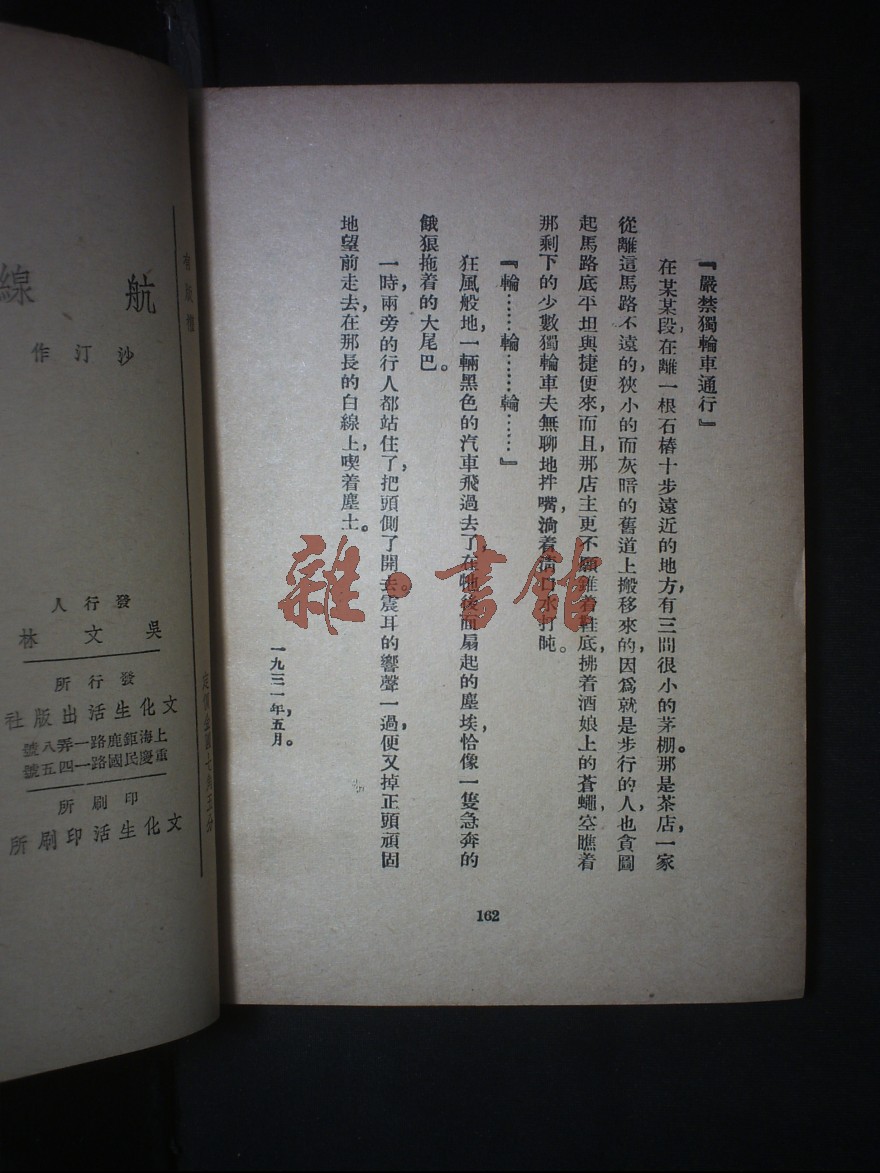 『嚴禁獨輪車通行』
在某某段在離一根石樁十步遠近的地方，有三間很小的茅棚。那是茶店，一家
從離這馬路不遠的，狹小的而灰暗的舊道上搬移來的，因爲就是步行的人，也貪圖
起馬路底平坦與捷便來，而且，那店主更不願錐着鞋底，拂着酒娘上的蒼蠅，空瞧着
那剩下的少數獨輪車夫無聊地拌嘴，淌着淸口水打盹。
『輪……輪……輪……』
狂風般地，一輛黑色的汽車飛過去了，在牠後面扇起的塵埃恰像一隻急奔的
餓狼拖着的大尾巴。
一時，兩旁的行人都站住了，把頭側了開去，震耳的響聲一過，便又掉正頭頑固
地望前走去，在那長的白線上，喫着塵土。
一九三一年，五月。
162
航線
沙汀作
發行人
吳文林
發行所
文化生活出版社
上海鉅鹿路一弄八號
重慶民國路一四五號
印刷所
文化生活印刷所
雜·書館